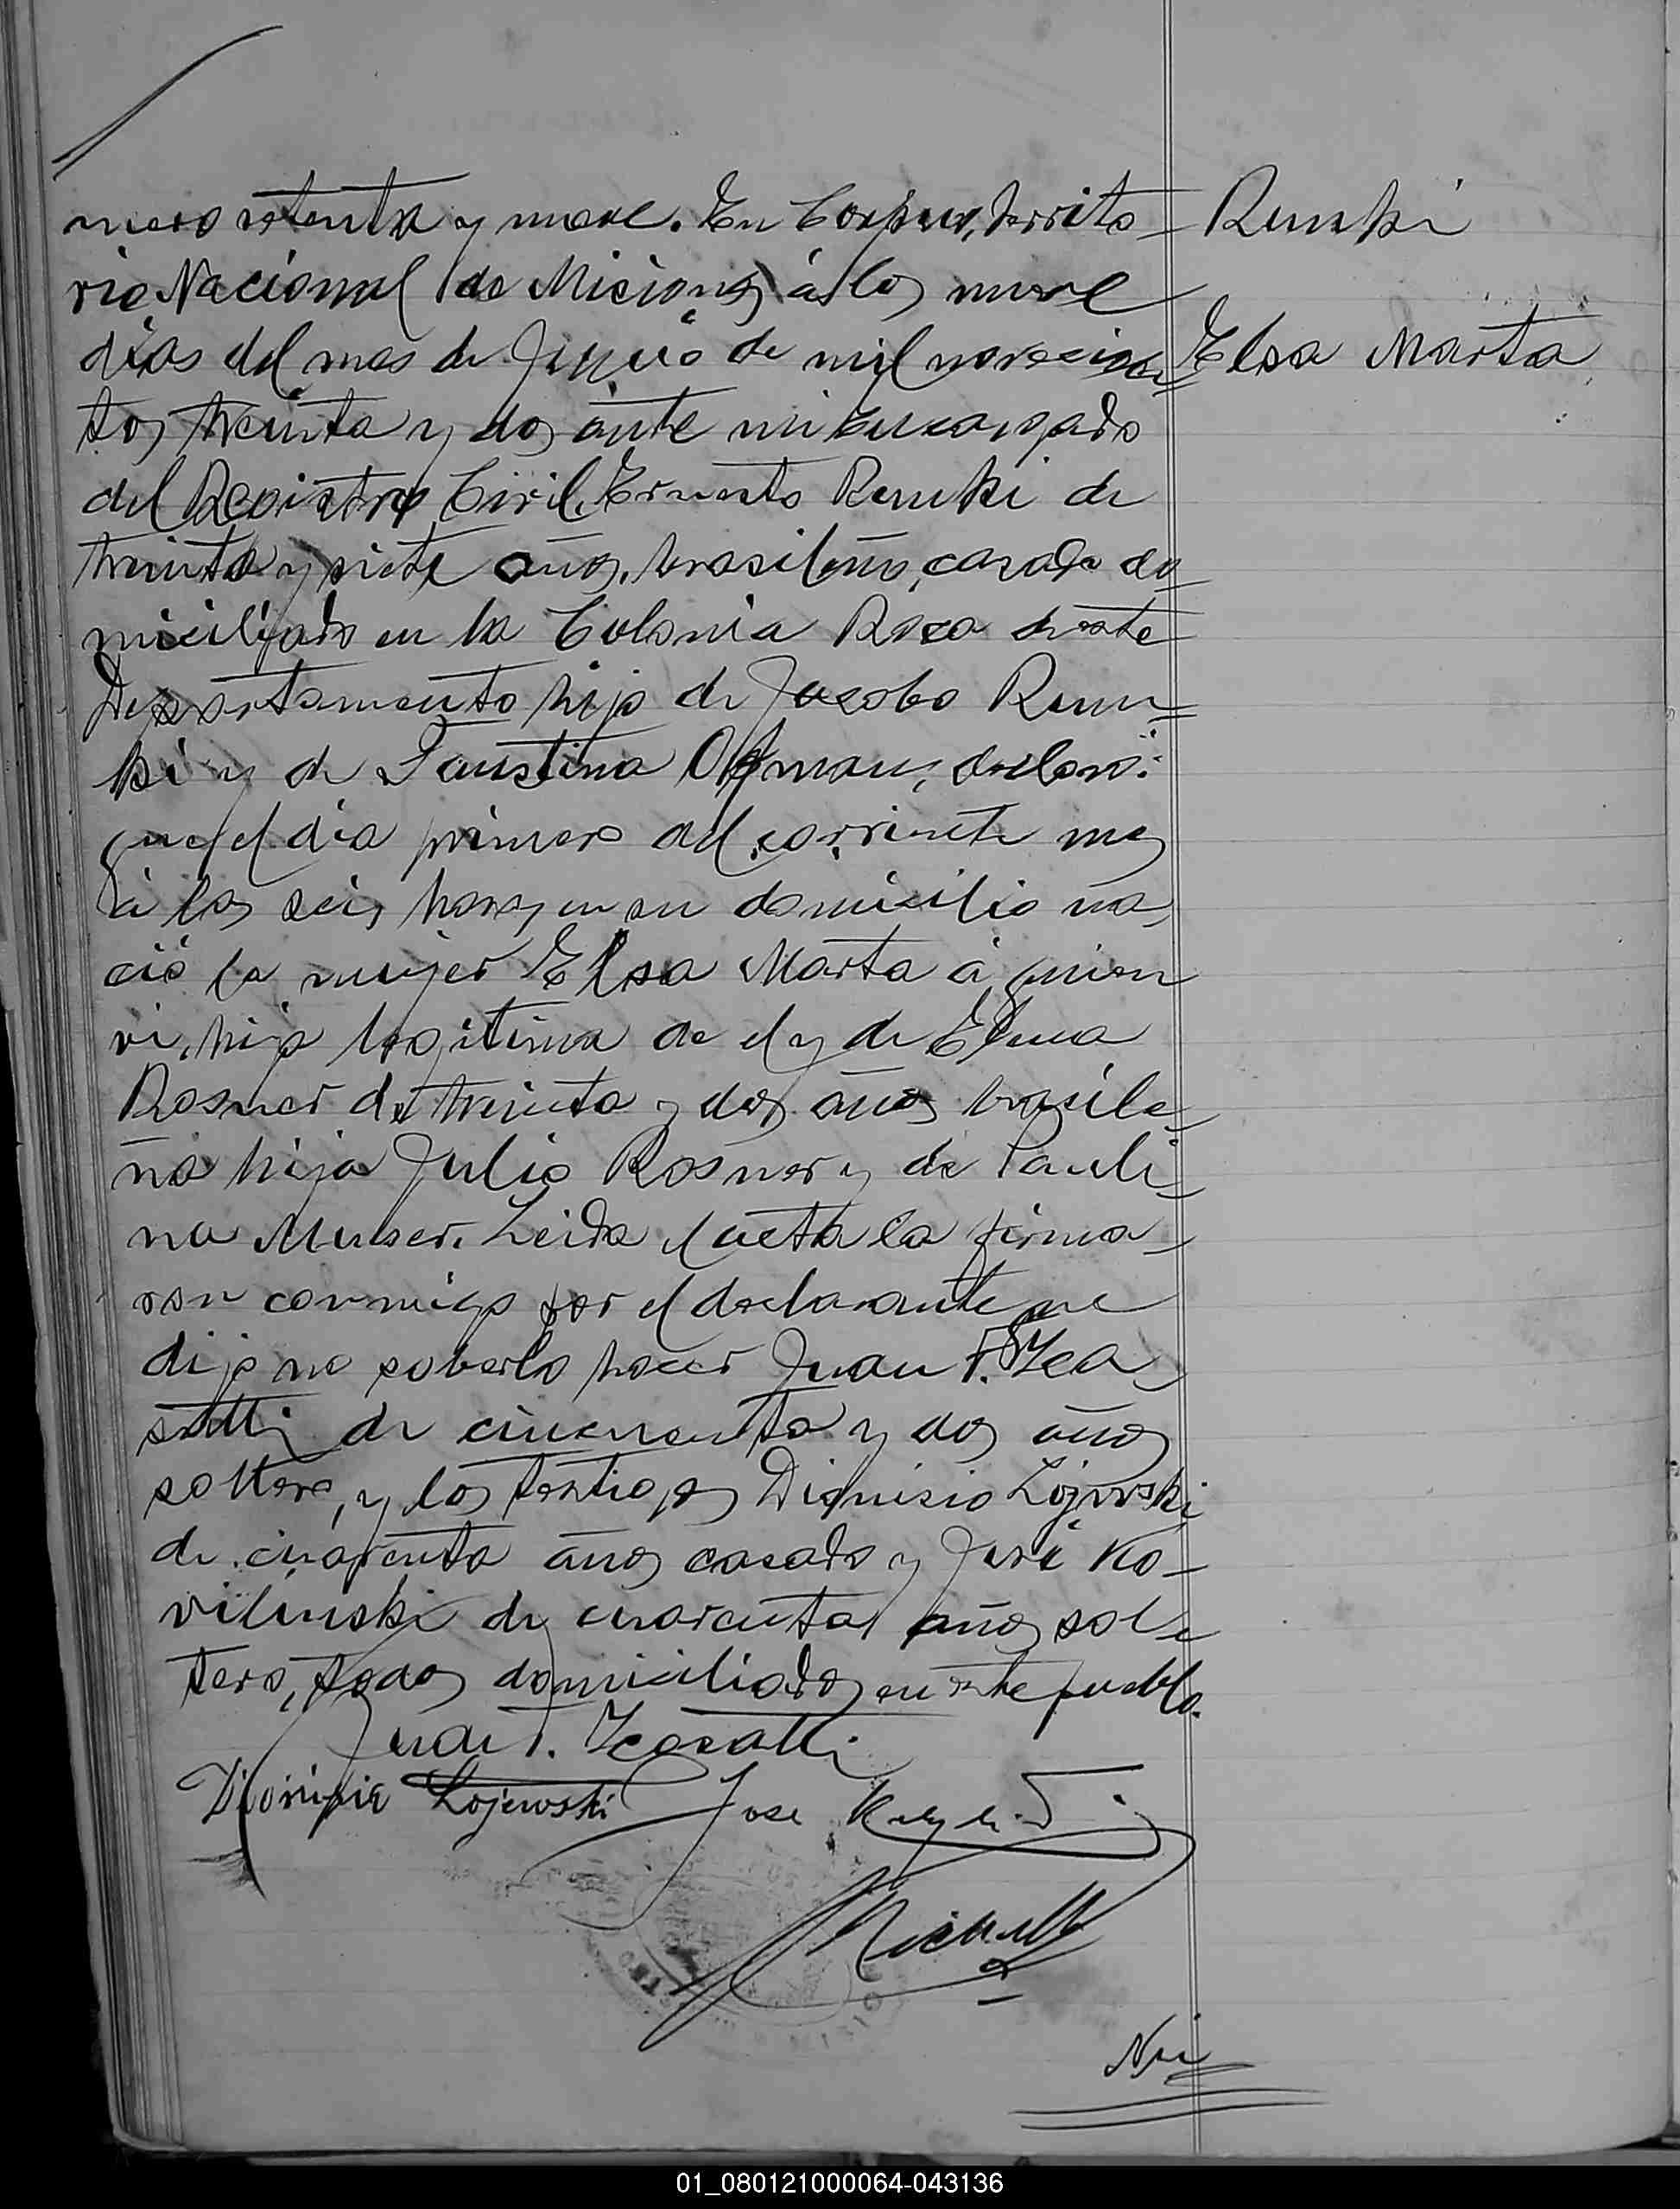 mero setenta y nueve. En Corpus, Territo-
rio Nacional de Misiones á los nueve
dias del mes de Junio de mil novecien
tos treinta y dos ante mi Encargado
del Registro Civil, Ernesto Runki de
treinta y siete años, brasileño, casado do
miciliado en la Colonia Roca de este
Departamento hijo de Jacobo Run-
ki y de Faustina declaró:
que el dia primero del corriente mes
á las seis horas en su domicilio na
ció la mujer Elsa Marta á quien
vi, hija legitima de el y de Elena
Rosner de treinta y dos años brasile-
ña hija Julio Rosner y de Pauli-
na Muser. Leida el acta la firma-
ron conmigo por el declarante que
dijo no saberlo hacer Juan T. Zea
satti de cincuenta y dos años
soltero, y los testigos Dionisio Lojewski
de cuarenta años casado y José Ko-
vilinski de cuarenta años sol-
tero, todos domiciliados en este pueblo.
Runki
Elsa Marta
Juan T.
Dionizie Lojewski
Jose
Nú
01_080121000064-043136